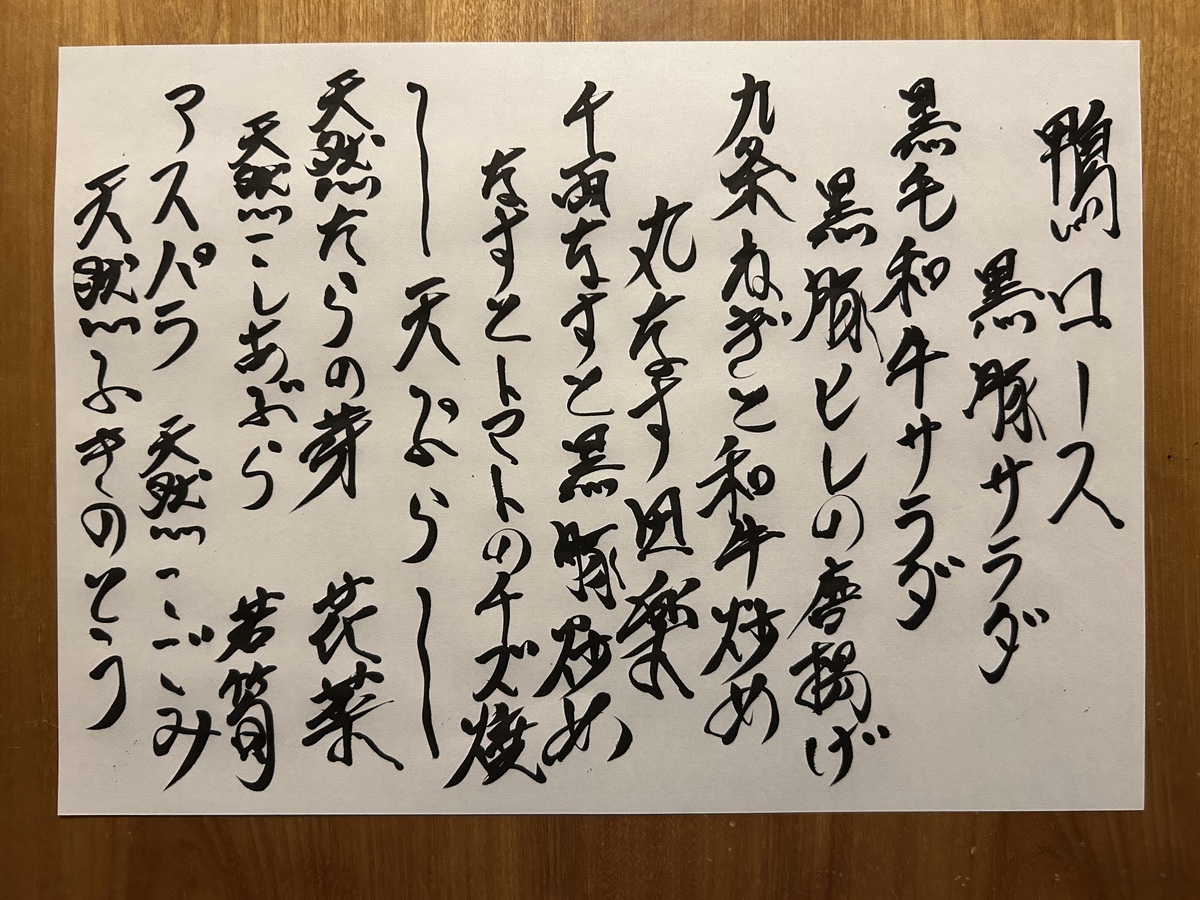 鴨ロース
黒豚サラダ
黒毛和牛サラダ
黒豚ヒレの唐揚げ
九条ねぎと和牛炒め
丸なす田楽
千両なすと黒豚炒め
なすとトマトのチーズ焼
〜天ぷら〜
天然たらの芽 花菜
天然こしあぶら 若筍
アスパラ 天然こごみ
天然ふきのとう